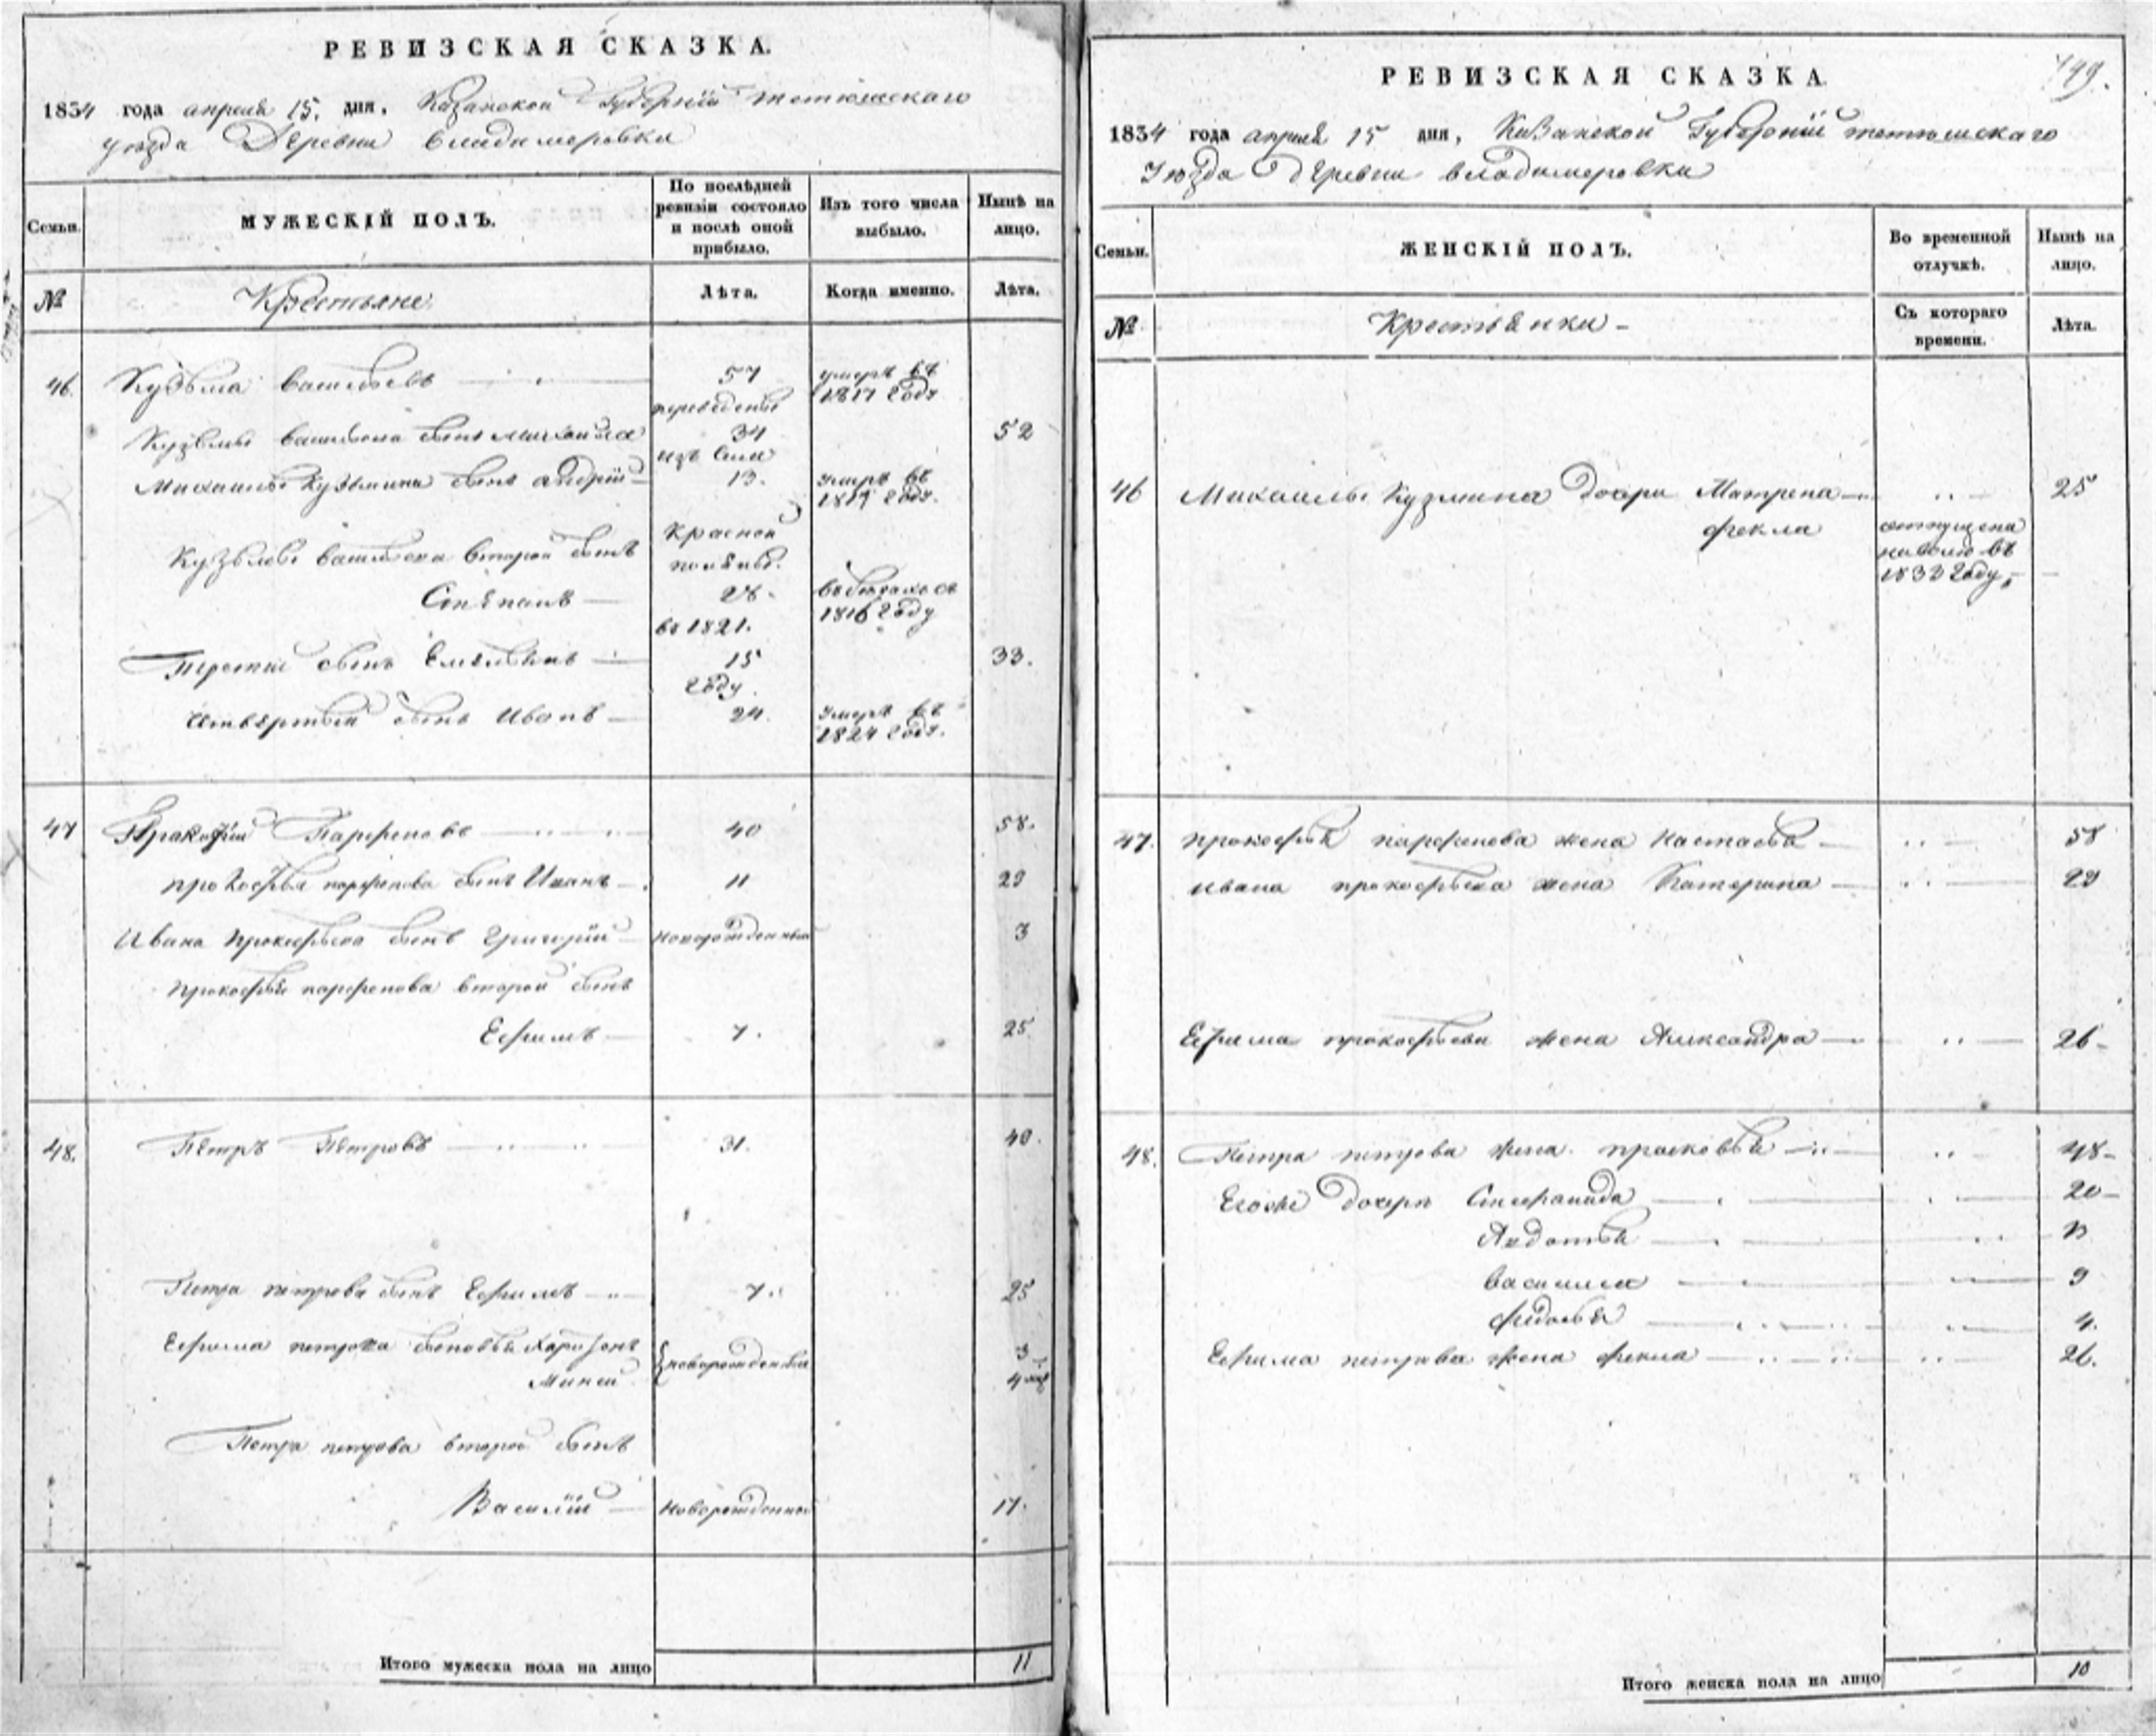 РЕВИЗСКАЯ СКАЗКА.
1834 года апреля 15. дня. Казанской Губернїи тетюшскаго
уезда Деревни владимеровки
Семьи.
МУЖЕСКІЙ ПОЛЪ.
По послѣдней ревизіи состояло и послѣ оной прибыло.
Изъ того числа выбыло.
Нынѣ на лицо.
№
Крестьяне.
Лѣта.
Когда именно.
Лѣта.
46. Кузьма васильевъ 57 умеръ въ 1817 году
переведены
Кузьмы васильева сынъ михайла 34 52
изъ села
Михайлы Кузьмина сынъ андрей 13. умеръ въ
Красной
Кузьмы васильева второй сынъ
поляны.
Степанъ 28. въ бегахъ съ 1816 году
въ 1821.
Третій сынъ Емельянъ 15 33.
году.
четвертый сынъ Иванъ 24. умеръ въ 1824 году.
47 Пракофїй Парфеновъ 40 58.
прокофья парфенова сынъ Иванъ 11 29
Ивана Прокофьева сынъ Григорїй новорожденный 3
Прокофья парфенова второй сынъ
Ефимъ 7. 25
48. Петръ Петровъ 31. 49.
Петра петрова сынъ Ефимъ 7. 25
Ефима петрова сыновья Харитонъ новорожденныя 3
4 мѣс
Петра петрова второй сынъ
Василїй Новорожденной 17.
Итого мужеска пола на лицо 11
149.
РЕВИЗСКАЯ СКАЗКА.
1834 года апреля 15 дня, Казанской Губернїи тетюшскаго
Уезда деревни владимеровки
Семьи.
ЖЕНСКІЙ ПОЛЪ.
Во временной отлучкѣ.
Нынѣ на лицо.
№
Крестьянки
Съ котораго времени.
Лѣта.
46 Михайлы Кузмина дочери Матрена 25
фекла отпущена на волю въ 1833 году,
47. прокофья парфенова жена Настасья 58
Ивана прокофьева жена Катерина 29
Ефима прокофьева жена Александра 26
48. Петра петрова жена прасковья 48
Егоже дочери Степанида 20
Авдотья
василиса 9
федосья 4.
Ефима петрова жена фекла 26.
Итого женска пола на лицо 10